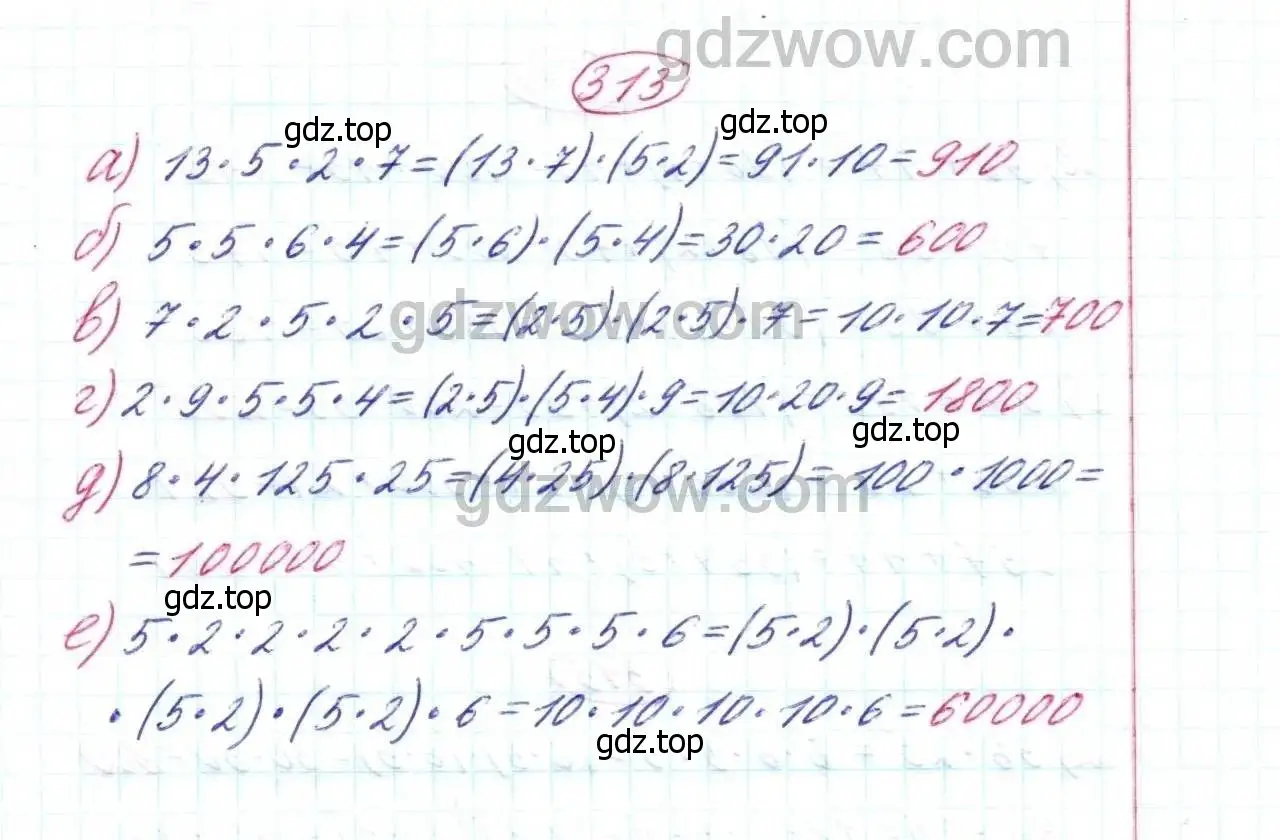 gdzwow.com
313
gdz.top gdz.top
а) 13·5·2·7=(13·7)·(5·2)=91·10=910
б) 5·5·6·4=(5·6)·(5·4)=30·20=600
gdzwow.com
в) 7·2·5·2·5=(2·5)·(2·5)·7=10·10·7=700
г) 2·9·5·5·4=(2·5)·(5·4)·9=10·20·9=1800
gdz.top gdz.top
д) 8·4·125·25=(4·25)·(8·125)=100·1000=
gdzwow.com
=100000
gdz.top
е) 5·2·2·2·2·5·5·5·6=(5·2)·(5·2)·
·(5·2)·(5·2)·6=10·10·10·10·6=60000
gdz.top